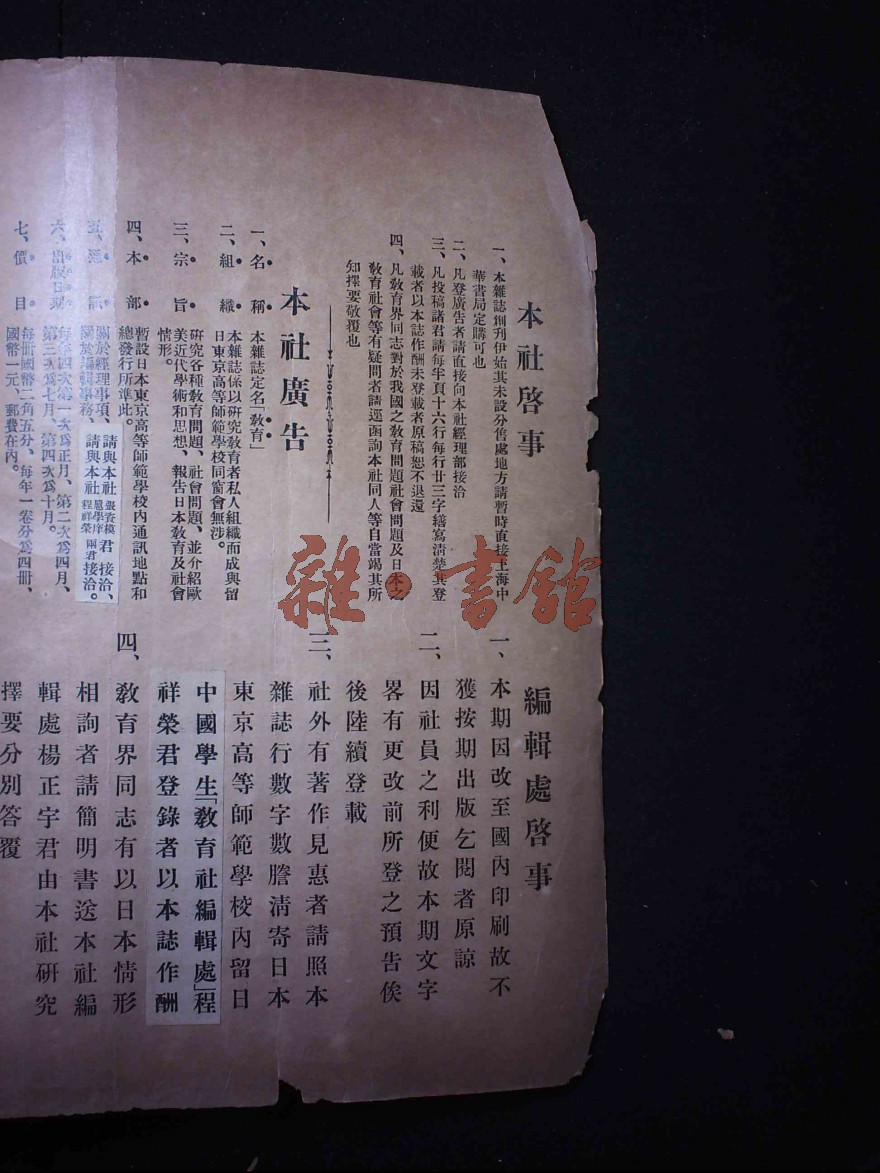 本社啓事
一、本雜誌創刊伊始其未設分售處地方請暫時直接上海中
華書局定購可也
二、凡登廣告者請直接向本社經理部接洽
三、凡投稿諸君請每半頁十六行每行廿三字繕寫清楚其登
載者以本誌作酬未登載者原稿恕不退還
四、凡敎育界同志對於我國之敎育問題社會問題及日本之
敎育社會等有疑問者請逕函詢本社同人等自當竭其所
知擇要敬覆也
本社廣告
一、名稱 本雜誌定名「敎育」
二、組織 本雜誌係以硏究敎育者私人組織而成與留
日東京高等師範學校同窗會無涉。
三、宗旨 硏究各種敎育問題、社會問題、並介紹歐
美近代學術和思想、報告日本敎育及社會
情形。
四、本部 暫設日本東京高等師範學校內通訊地點和
總發行所準此。
五、通訊 關於經理事項、請與本社張資模君接洽、
關於編輯事務、請與本社程祥榮兩君接洽。
六、出版日期 每年四次第一次爲正月、第二次爲四月、
第三次爲七月、第四次爲十月。
七、價目 每冊國幣二角五分、每年一卷分爲四冊、
國幣一元、郵費在內。
編輯處啓事
一、本期因改至國內印刷故不
獲按期出版乞閱者原諒
二、因社員之利便故本期文字
畧有更改前所登之預告俟
後陸續登載
三、社外有著作見惠者請照本
雜誌行數字數謄淸寄日本
東京高等師範學校內留日
中國學生「敎育社編輯處」程
祥榮君登錄者以本誌作酬
四、敎育界同志有以日本情形
相詢者請簡明書送本社編
輯處楊正宇君由本社硏究
擇要分別答覆
雜·書館